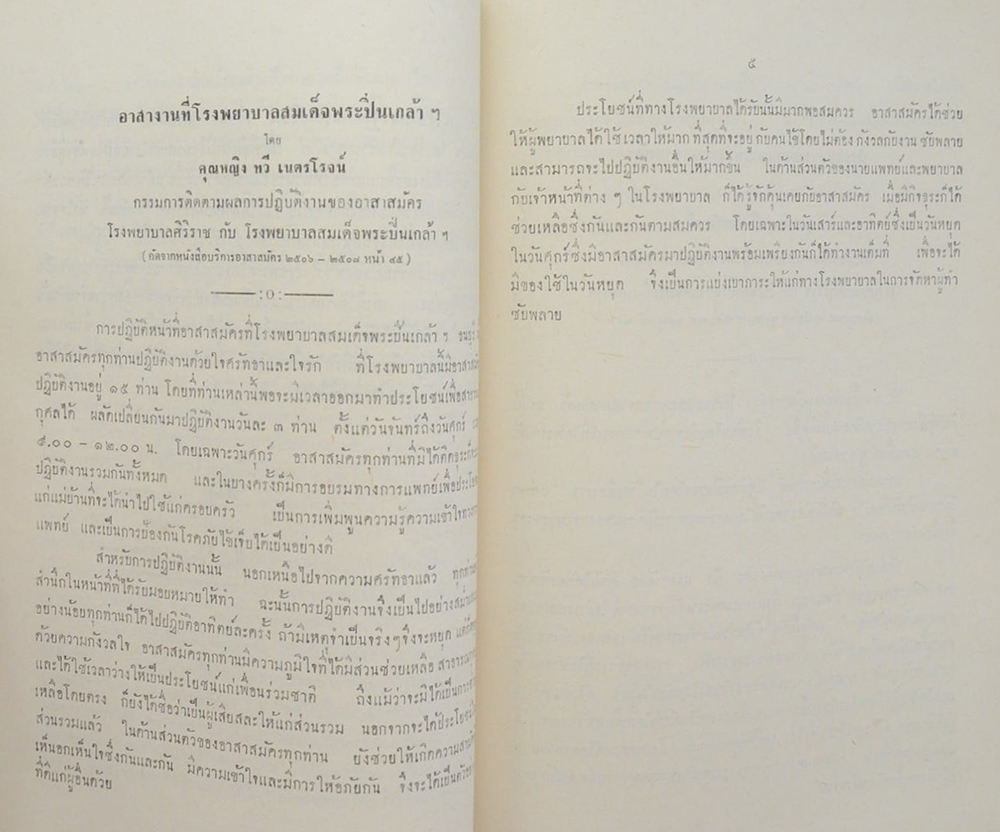 อาสางานที่โรงพยาบาลสมเด็จพระปิ่นเกล้า ฯ
โดย
คุณหญิง ทวี เนตรโรจน์
กรรมการติดตามผลการปฏิบัติงานของอาสาสมัคร
โรงพยาบาลศิริราช กับ โรงพยาบาลสมเด็จพระปิ่นเกล้า ฯ
(คัดจากหนังสือบริการอาสาสมัคร ๒๕๐๖ – ๒๕๐๘ หน้า ๔๕)
:๐:
การปฏิบัติหน้าที่อาสาสมัครที่โรงพยาบาลสมเด็จพระปิ่นเกล้า ฯ
อาสาสมัครทุกท่านปฏิบัติงานด้วยใจศรัทธาและใจรัก ที่โรงพยาบาลนี้มีอาสาสมัคร
ปฏิบัติงานอยู่ ๑๕ ท่าน โดยที่ท่านเหล่านี้พอจะมีเวลาออกมาทำประโยชน์เพื่อ
กุศลได้ ผลัดเปลี่ยนกันมาปฏิบัติงานวันละ ๓ ท่าน ตั้งแต่วันจันทร์ถึงวันศุกร์
๙.๐๐ – ๑๒.๐๐ น. โดยเฉพาะวันศุกร์ อาสาสมัครทุกท่านที่มิได้ติดธุระ
ปฏิบัติงานรวมกันทั้งหมด และในบางครั้งก็มีการอบรมทางการแพทย์เพื่อประโยชน์
แก่แม่บ้านที่จะได้นำไปใช้แก่ครอบครัว เป็นการเพิ่มพูนความรู้ความเข้าใจ
แพทย์ และเป็นการป้องกันโรคภัยไข้เจ็บได้เป็นอย่างดี
สำหรับการปฏิบัติงานนั้น นอกเหนือไปจากความศรัทธาแล้ว
สำนึกในหน้าที่ที่ได้รับมอบหมายให้ทำ ฉะนั้นการปฏิบัติงานจึงเป็นไปอย่าง
อย่างน้อยทุกท่านก็ได้ไปปฏิบัติอาทิตย์ละครั้ง ถ้ามีเหตุจำเป็นจริงๆจึงจะหยุด
ด้วยความกังวลใจ อาสาสมัครทุกท่านมีความภูมิใจที่ได้มีส่วนช่วยเหลือ
และได้ใช้เวลาว่างให้เป็นประโยชน์แก่เพื่อนร่วมชาติ ถึงแม้ว่าจะมิได้เป็นการ
เหลือโดยตรง ก็ยังได้ชื่อว่าเป็นผู้เสียสละให้แก่ส่วนรวม นอกจากจะได้ประโยชน์
ส่วนรวมแล้ว ในด้านส่วนตัวของอาสาสมัครทุกท่าน ยังช่วยให้เกิดความ
เห็นอกเห็นใจซึ่งกันและกัน มีความเข้าใจและมีการให้อภัยกัน จึงจะได้เป็น
ที่ดีแก่ผู้อื่นด้วย
๕
ประโยชน์ที่ทางโรงพยาบาลได้รับนั้นมีมากพอสมควร อาสาสมัครได้ช่วย
ให้ผู้พยาบาลได้ใช้เวลาให้มากที่สุดที่จะอยู่กับคนไข้โดยไม่ต้องกังวลกับงานซัพพลาย
และสามารถจะไปปฏิบัติงานอื่นให้มากขึ้น ในด้านส่วนตัวของนายแพทย์และพยาบาล
กับเจ้าหน้าที่ต่าง ๆ ในโรงพยาบาล ก็ได้รู้จักคุ้นเคยกับอาสาสมัคร เมื่อมีกิจธุระก็ได้
ช่วยเหลือซึ่งกันและกันตามสมควร โดยเฉพาะในวันเสาร์และอาทิตย์ซึ่งเป็นวันหยุด
ในวันศุกร์ซึ่งมีอาสาสมัครมาปฏิบัติงานพร้อมเพรียงกันก็ได้ทำงานเต็มที่ เพื่อจะได้
มีของใช้ในวันหยุด จึงเป็นการแบ่งเบาภาระให้แก่ทางโรงพยาบาลในการจัดหาผู้ทำ
ซัพพลาย